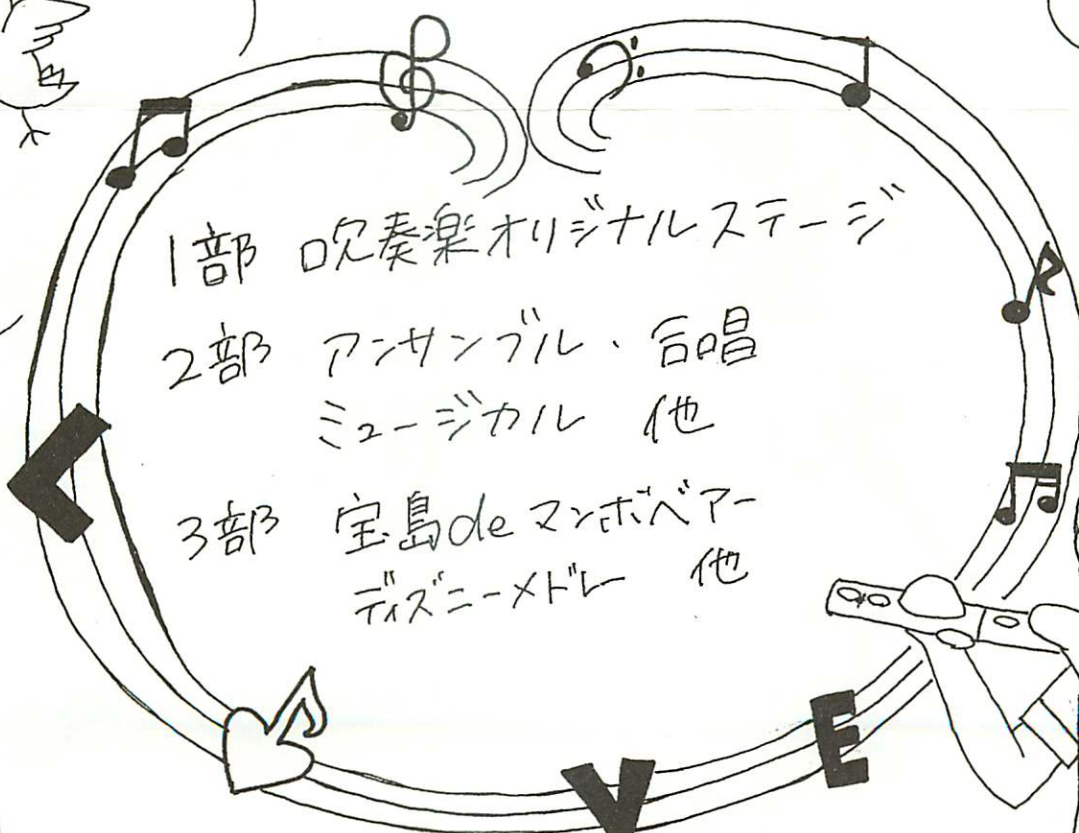 1部 吹奏楽オリジナルステージ
2部 アンサンブル・合唱
ミュージカル 他
3部 宝島deマンボベアー
ディズニーメドレー 他
L
V
E